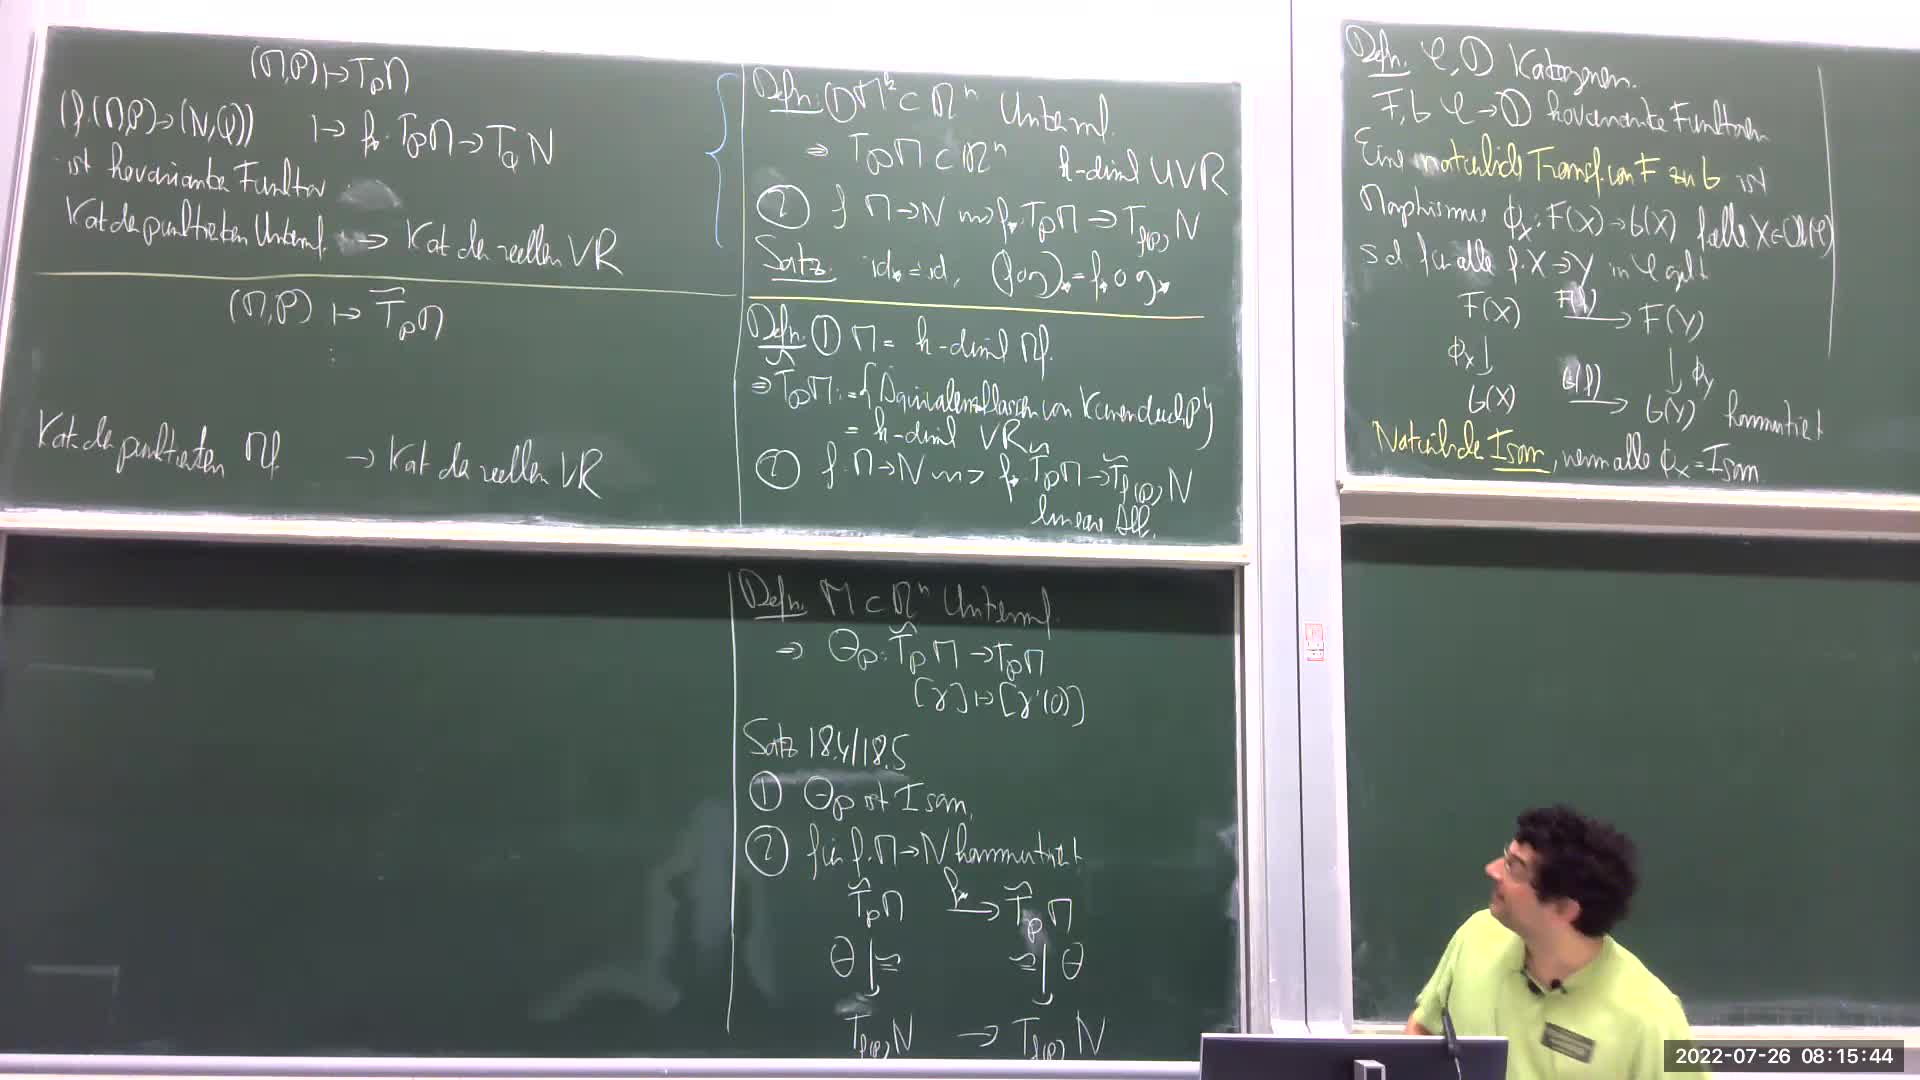 (M,P) ↦ T_P M
(f:(M,P)→(N,Q)) ↦ f_* T_P M → T_Q N
ist kovariante Funktor
Kat der punktierten Untermf. → Kat der reellen VR
(M,P) ↦ T̃_P M
⋮
Kat der punktierten Mf. → Kat der reellen VR
Defn. ① M^k ⊂ R^n Untermf.
⇒ T_P M ⊂ R^n k-diml UVR
② f M→N ⇝ f_*: T_P M → T_{f(P)} N
Satz. id_* = id, (f∘g)_* = f_* ∘ g_*
Defn. ① M = k-diml Mf.
⇒ T̃_P M := {Äquivalenzklassen von Kurven durch P}
= k-diml VR
② f: M→N ⇝ f_* T̃_P M → T̃_{f(P)} N
lineare Abb.
Defn. M ⊂ R^n Untermf.
⇒ Θ_P: T̃_P M → T_P M
[γ] ↦ [γ'(0)]
Satz 18.4/18.5
① Θ_P ist Isom.
② für f: M→N kommutiert
T̃_P M f_* → T̃_P M
Θ ↓ ≅ ≅ ↓ Θ
T_{f(P)} N → T_{f(P)} N
Defn. 𝒞, 𝒟 Kategorien.
F, G 𝒞→𝒟 kovariante Funktoren
Eine natürliche Transf. von F zu G ist
Morphismus ϕ_X: F(X)→G(X) f. alle X∈Ob(𝒞)
sd für alle f: X→Y in 𝒞 gilt
F(X) F(f) → F(Y)
ϕ_X ↓ ↓ ϕ_Y
G(X) G(f) → G(Y) kommutiert
Natürliche Isom, wenn alle ϕ_X = Isom
2022-07-26 08:15:44